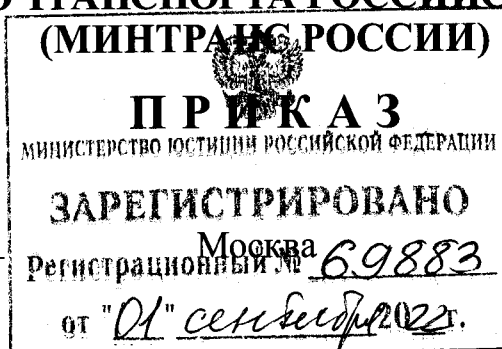 ТРАНСПОРТА РОССИЙС
(МИНТРАНС РОССИИ)
П Р И К А З
МИНИСТЕРСТВО ЮСТИЦИИ РОССИЙСКОЙ ФЕДЕРАЦИИ
ЗАРЕГИСТРИРОВАНО
Москва
Регистрационный № 69883
от "01" сентября 2022г.